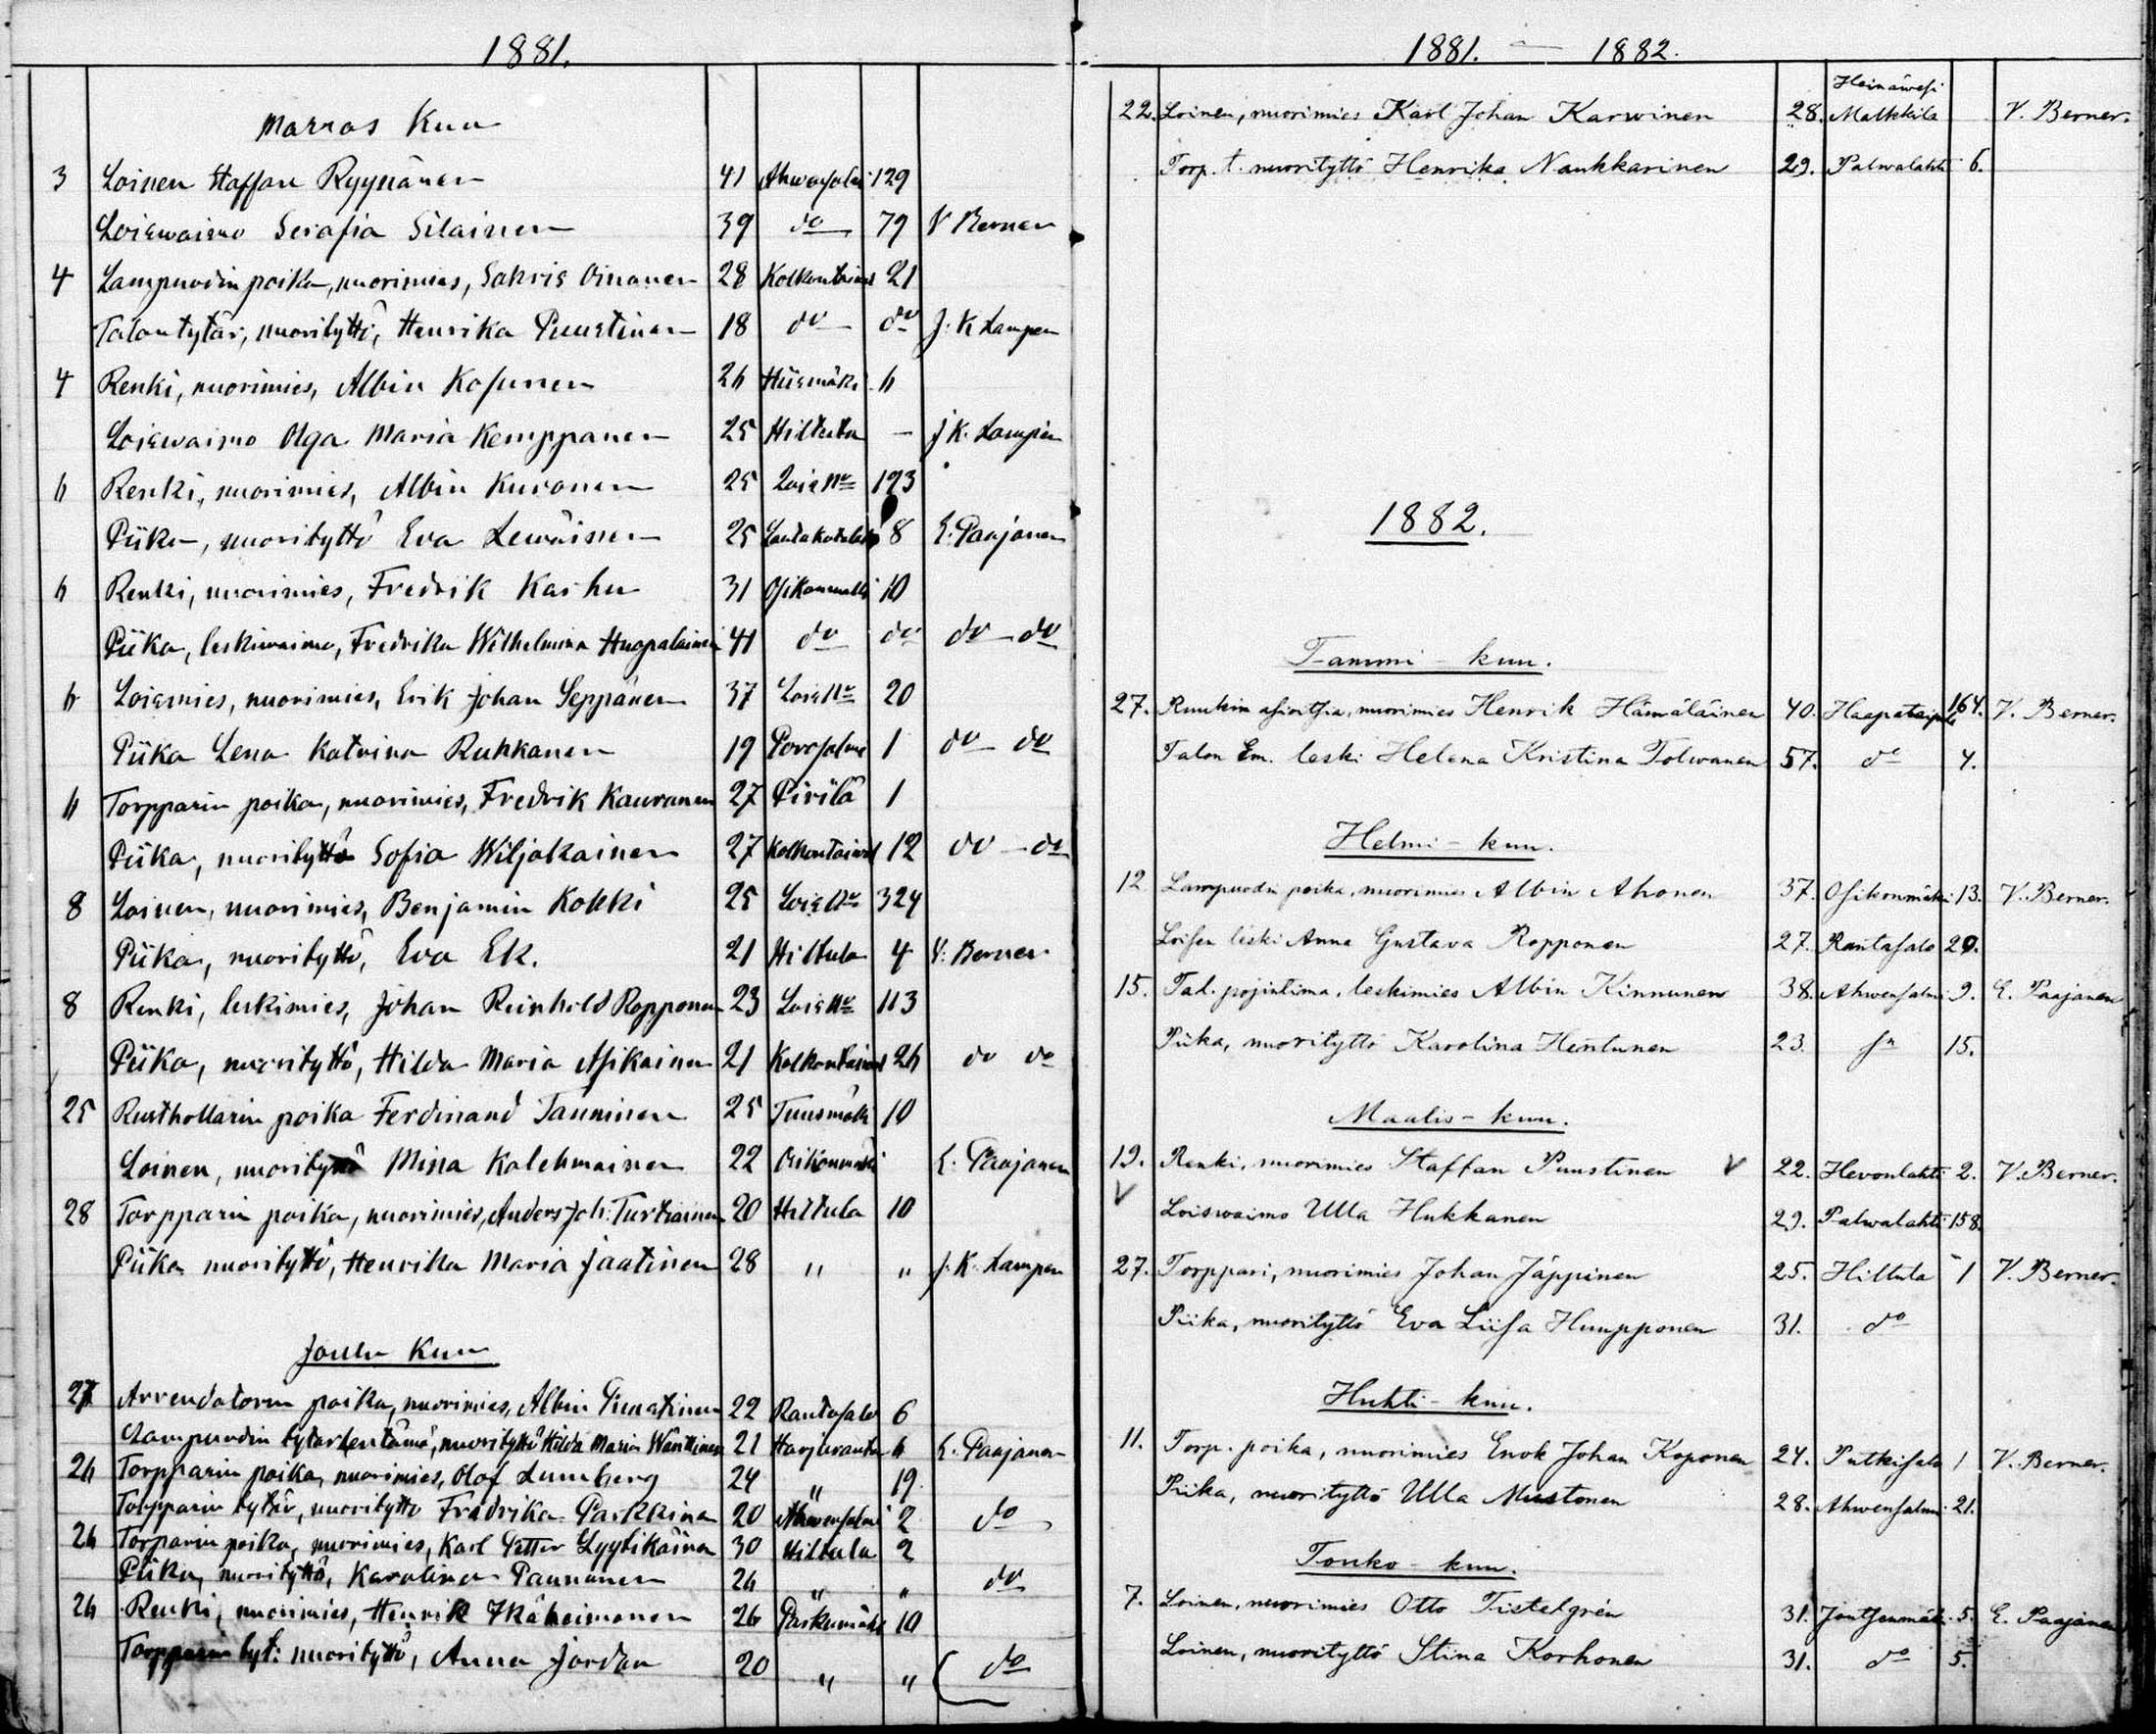 1881.
Marras Kuu
3 Loinen Staffan Ryynänen 41 Ahvensalmi 129
Loiswaimo Serafia Silainen 39 do 79 V Berner
4 Lampuodin poika, nuorimies, Sakris Oinonen 28 Kolkontaival 21
Talontytär, nuorityttö, Henrika Puustinen 18 do do J. K Lampen
4 Renki, nuorimies, Albin Kosunen 26 Hiismäki 6
Loiswaimo Olga Maria Kemppanen 25 Hiltula – J K. Lampén
6 Renki, nuorimies, Albin Kuronen 25 Lois No 193
Piika, nuorityttö Eva Lewäinen 25 8 E. Paajanen
6 Renki, nuorimies, Fredrik Karhu 31 Osikonmäki 10
Piika, leskiwaimo, Fredrika Wilhelmina Huopalainen 41 do do do do
6 Loismies, nuorimies, Erik Johan Seppänen 37 Lois No 20
Piika Lena Katrina Ruhkanen 19 Porosalmi 1 do do
6 Torpparin poika, nuorimies, Fredrik Kauranen 27 Pirilä 1
Piika, nuorityttö Sofia Wiljakainen 27 Kolkontaival 12 do – do
8 Loinen, nuorimies, Benjamin Kokki 25 Lois No 324
Piika, nuorityttö, Eva Ek. 21 Hiltula 4 V: Berner
8 Renki, leskimies, Johan Reinhold Ropponen 23 Lois No 113
Piika, nuorityttö, Hilda Maria Asikainen 21 Kolkontaival 26 do do
25 Rusthollarin poika Ferdinand Tanninen 25 Tuusmäki 10
Loinen, nuorityttö Mina Kalehmainen 22 Osikonmäki E. Paajanen
28 Torpparin poika, nuorimies, Anders Joh: Turtiainen 20 Hiltula 10
Piika nuorityttö, Henrika Maria Jaatinen 28 " " J. K. Lampen
Joulu Kuu
27 Arrendatorin poika, nuorimies, Albin 22 Rantasalo 6
Lampuodin tytärlentämä, nuorityttö Hilda Maria Wänttinen 21 Harjuranta 6 E. Paajanen
26 Torpparin poika, nuorimies, Olof Lumberg 24 " 19
Torpparin tytär, nuorityttö Fredrika Parkkinen 20 Ahvensalmi 2 do
26 Torparin poika, nuorimies, Karl Petter Lyytikäinen 30 Hiltula 2
Piika, nuorityttö, Karolina Paunonen 26 " " do
26 Renki, nuorimies, Henrik Ikäheimonen 26 Parkumäki 10
Torpparin tyt: nuorityttö, Anna Jordan 20 " " do
1881. – 1882.
Heinäwesi
22. Loinen, nuorimies Karl Johan Karwinen 28. Malkkila V. Berner.
Torp. t. nuorityttö Henrika Naukkarinen 29. Palwalahti 6.
1882.
Tammi – kuu.
27. Ruukin nuorimies Henrik Hämäläinen 40. Haapataipale 164. V. Berner.
Talon Em. leski Helena Kristina Tolwanen 57. do 4.
Helmi – kuu.
12 Lampuodin poika, nuorimies Albin Ahonen 37. Osikonmäki 13. V. Berner.
Loisen leski Anna Gustava Ropponen 27. Rantasalo 20.
15. Tal. pojintima, leskimies Albin Kinnunen 38. Ahwensalmi 9. E. Paajanen
Piika, nuorityttö Karolina Hentunen 23. sn 15.
Maalis – kuu.
19. Renki, nuorimies Staffan Puustinen V 22. Hevonlahti 2. V. Berner.
V Loiswaimo Ulla Hukkanen 29. Palwalahti 158.
27. Torppari, nuorimies Johan Jäppinen 25. Hiltula 1 V. Berner.
Piika, nuorityttö Eva Liisa Humpponen 31. do
Huhti – kuu.
11. Torp. poika, nuorimies Enok Johan Koponen 24. Putkisalo 1 V. Berner.
Piika, nuorityttö Ulla Mustonen 28. Ahwensalmi 21.
Touko – kuu.
7. Loinen, nuorimies Otto Tistelgrén 31. Joutsenmäki 5. E. Paajanen
Loinen, nuorityttö Stina Korhonen 31. do 5.